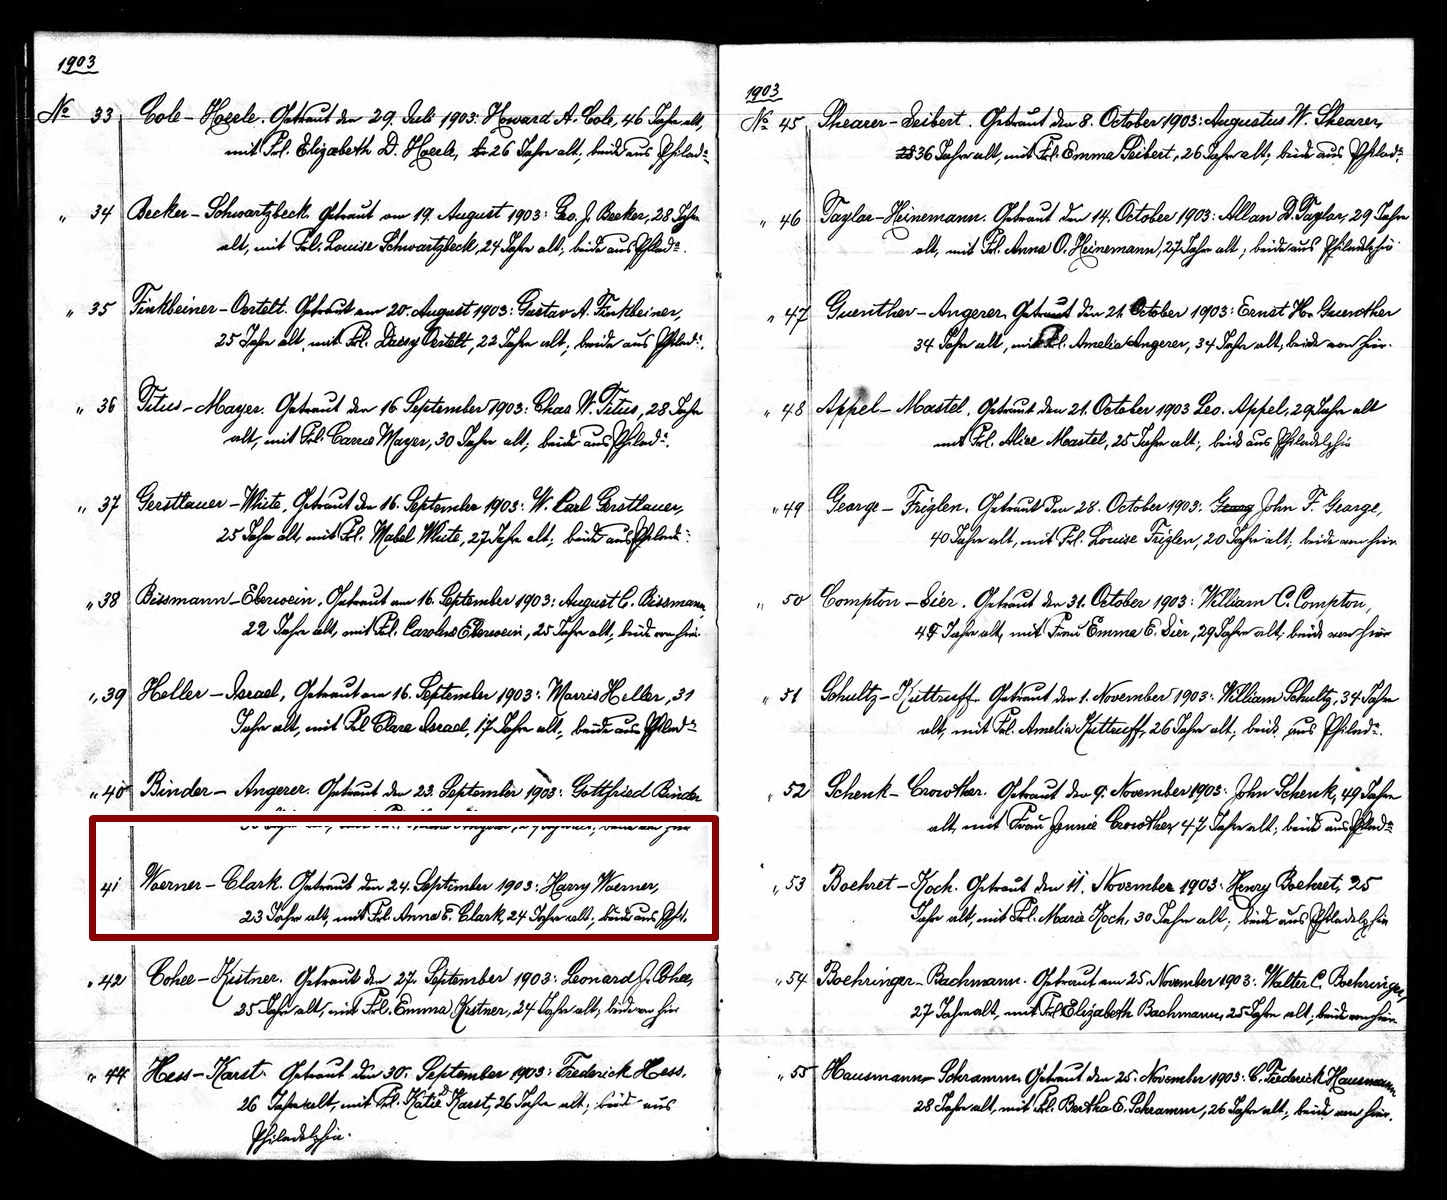 1903
No. 33 Cole – Hoerle. Getraut den 29. Juli 1903: Howard A. Cole, 46 Jahr alt,
mit Frl. Elizabeth D. Hoerle, 26 Jahre alt; beide aus Philada.
" 34 Becker – Schwartzbeck. Getraut am 19. August 1903: Geo. J. Becker, 28 Jahre
alt, mit Frl. Louise Schwartzbeck, 24 Jahre alt, beide aus Philada.
" 35 Finkbeiner – Oertelt. Getraut am 20. August 1903: Gustav A. Finkbeiner,
25 Jahre alt, mit Frl. Daisy Oertelt, 22 Jahre alt; beide aus Philad.
" 36 Titus – Mayer. Getraut den 16 September 1903: Chas W. Titus, 28 Jahre
alt, mit Frl. Carrie Mayer, 30 Jahre alt; beide aus Philad.
" 37 Gerstlauer – White, Getraut den 16. September 1903: W. Karl Gerstlauer,
25 Jahre alt, mit Frl. Mabel White, 27 Jahre alt; beide aus Philad.
" 38 Bissmann – Eberwein. Getraut am 16. September 1903: August C. Bissmann,
22 Jahre alt, mit Frl. Eberwein, 25 Jahre alt, beide von hier
" 39 Heller – Israel, Getraut am 16. September 1903: Morris Heller, 31
Jahre alt, mit Frl Clara Israel, 17 Jahre alt, beide aus Philad.
" 40 Binder – Angerer. Getraut den 23. September 1903: Gottfried Binder
41 Woerner – Clark. Getraut den 24. September 1903: Harry Woerner,
23 Jahre alt, mit Frl. Anna E. Clark, 24 Jahre alt; beide aus Phil.
" 42 Cohee – Kistner. Getraut den 27. September 1903: Leonard J. Cohee,
25 Jahre alt, mit Frl. Emma Kistner, 24 Jahre alt; beide von hier
" 44 Hess – Karst. Getraut den 30. September 1903: Frederick Hess,
26 Jahre alt, mit Frl. Katie Karst, 26 Jahre alt; beide aus
Philadelphia.
1903
No. 45 Shearer – Seibert. Getraut den 8. October 1903: Augustus W. Shearer,
36 Jahre alt, mit Frl. Emma Seibert, 26 Jahre alt; beide aus Philada.
" 46 Taylor – Heinemann. Getraut den 14. October 1903: Allan D. Taylor, 29 Jahre
alt, mit Frl. Anna O. Heinemann, 27 Jahre alt; beide aus Philadelphia
" 47 Guenther – Angerer, Getraut den 21. October 1903: Ernst H. Guenther
34 Jahre alt, mit Frl. Amelia Angerer, 34 Jahre alt; beide von hier.
" 48 Appel – Mastel. Getraut den 21. October 1903 Leo. Appel, 29 Jahre alt
mit Frl. Alice Mastel, 25 Jahre alt; beide aus Philadelphia
" 49 George – Friglen. Getraut den 28. October 1903: Georg John F. George,
40 Jahre alt, mit Frl. Louise Friglen, 20 Jahre alt; beide von hier
" 50 Compton – Sier. Getraut den 31. October 1903: William C. Compton,
Jahre alt, mit Frau Emma E. Sier, 29 Jahre alt; beide von hier
" 51 Schultz – Kuttruff. Getraut den 1. November 1903: William Schultz, 34 Jahre
alt, mit Frl. Amelia Kuttruff, 26 Jahre alt; beide aus Philada.
" 52 Schenk – Crowther. Getraut den 9. November 1903: John Schenk, 49 Jahre
alt, mit Frau Jennie Crowther, 47 Jahre alt; beide aus Philada.
" 53 Boehret – Koch. Getraut den 11. November 1903: Henry Boehret, 25
Jahre alt, mit Frl. Marie Koch, 30 Jahre alt; beide aus Philadelphia
" 54 Boehringer – Bachmann. Getraut am 25. November 1903: Walter C. Boehringer,
27 Jahre alt, mit Frl Elizabeth Bachmann, 25 Jahre alt; beide von hier
" 55 Hausmann – Schramm. Getraut den 25. November 1903: C. Frederick Hausmann
28 Jahre alt, mit Frl. Bertha E. Schramm, 26 Jahre alt, beide von hier.